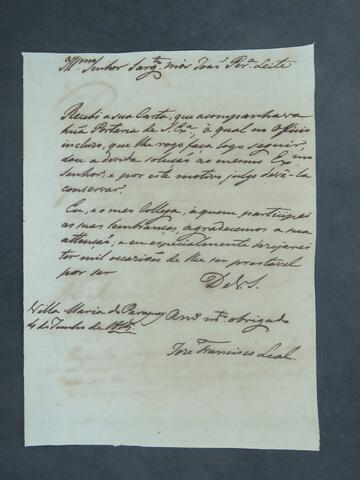 Illmo Senhor Sargto mór João Pera Leite
Recebi a sua Carta, que acompanhava
huã Portaria de S. Exa, á qual no Officio
incluso, que lhe rogo faça logo seguir,
dou a devida solução ao mesmo Exmo
Senhor: e por este motivo julgo devê-la
conservar.
Eu, e o meu Collega, á quem participei
as suas lembranças, agradecemos a sua
attenção; e eu especialmente desejarei
ter mil occasiões de lhe ser prestavel
por ser
De V. S.
Villa Maria do Paraguay Amo mto obrigado
4 de Junho de
Joze Francisco Leal.